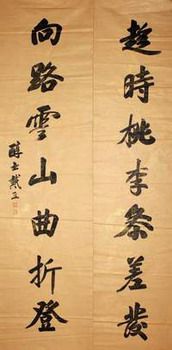 趁時桃李參差發
向路雲山曲折登
醇士戴熙